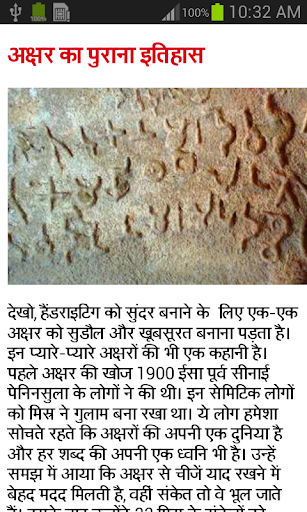 100% 10:32 AM
अक्षर का पुराना इतिहास
देखो, हैंडराइटिंग को सुंदर बनाने के लिए एक-एक
अक्षर को सुडौल और खूबसूरत बनाना पड़ता है।
इन प्यारे-प्यारे अक्षरों की भी एक कहानी है।
पहले अक्षर की खोज 1900 ईसा पूर्व सीनाई
पेनिनसुला के लोगों ने की थी। इन सेमिटिक लोगों
को मिस्र ने गुलाम बना रखा था। ये लोग हमेशा
सोचते रहते कि अक्षरों की अपनी एक दुनिया है
और हर शब्द की अपनी एक ध्वनि भी है। उन्हें
समझ में आया कि अक्षर से चीजें याद रखने में
बेहद मदद मिलती है, वहीं संकेत तो वे भूल जाते